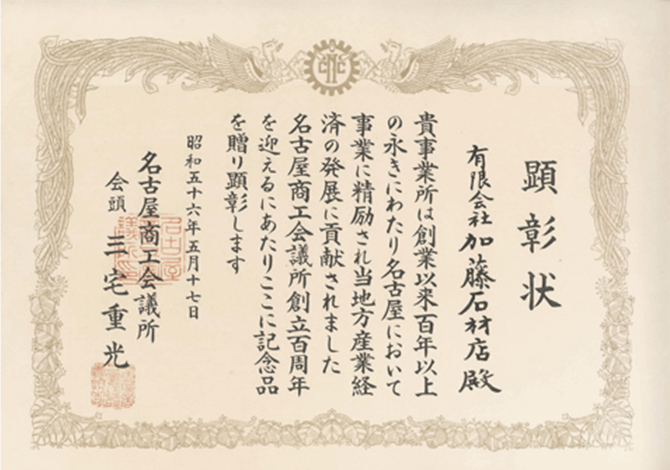 顕彰状
有限会社 加藤石材店殿
貴事業所は創業以来百年以上
の永きにわたり名古屋において
事業に精励され当地方産業経
済の発展に貢献されました
名古屋商工会議所創立百周年
を迎えるにあたりここに記念品
を贈り顕彰します
昭和五十六年五月十七日
名古屋商工会議所
会頭 三宅重光